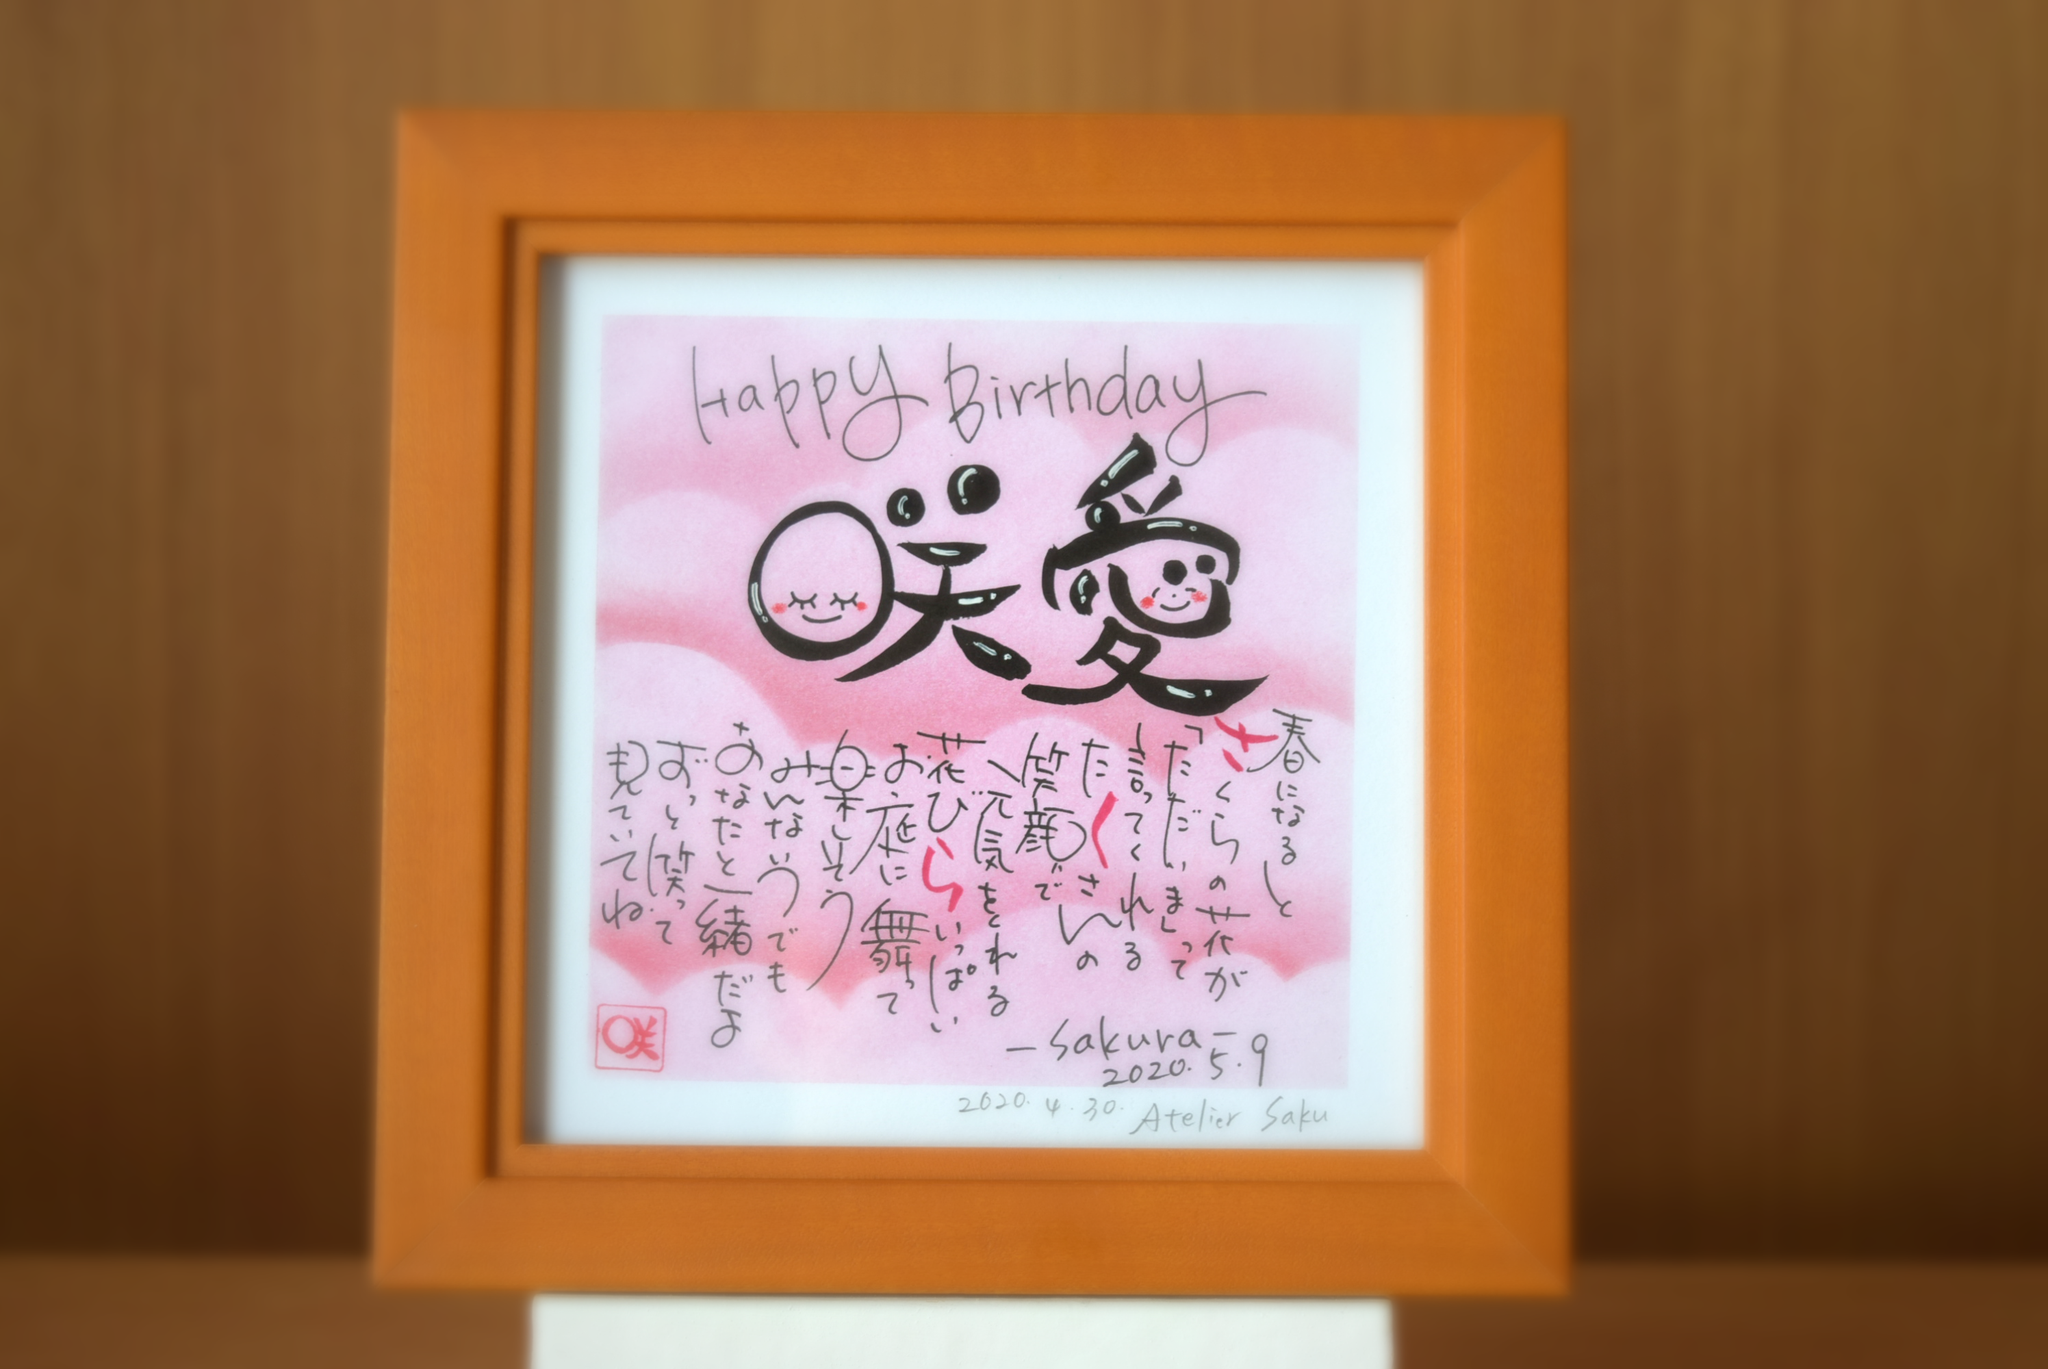 Happy Birthday
咲愛
春になると
さくらの花が
「ただいま」って
言ってくれる
たくさんの
笑顔で
元気をくれる
花びらいっぱい
お庭に舞って
楽しそう
みんないつでも
あなたと一緒だよ
ずっと笑って
見ていてね
-Sakura-
2020.5.9
2020.4.30. Atelier Saku
咲